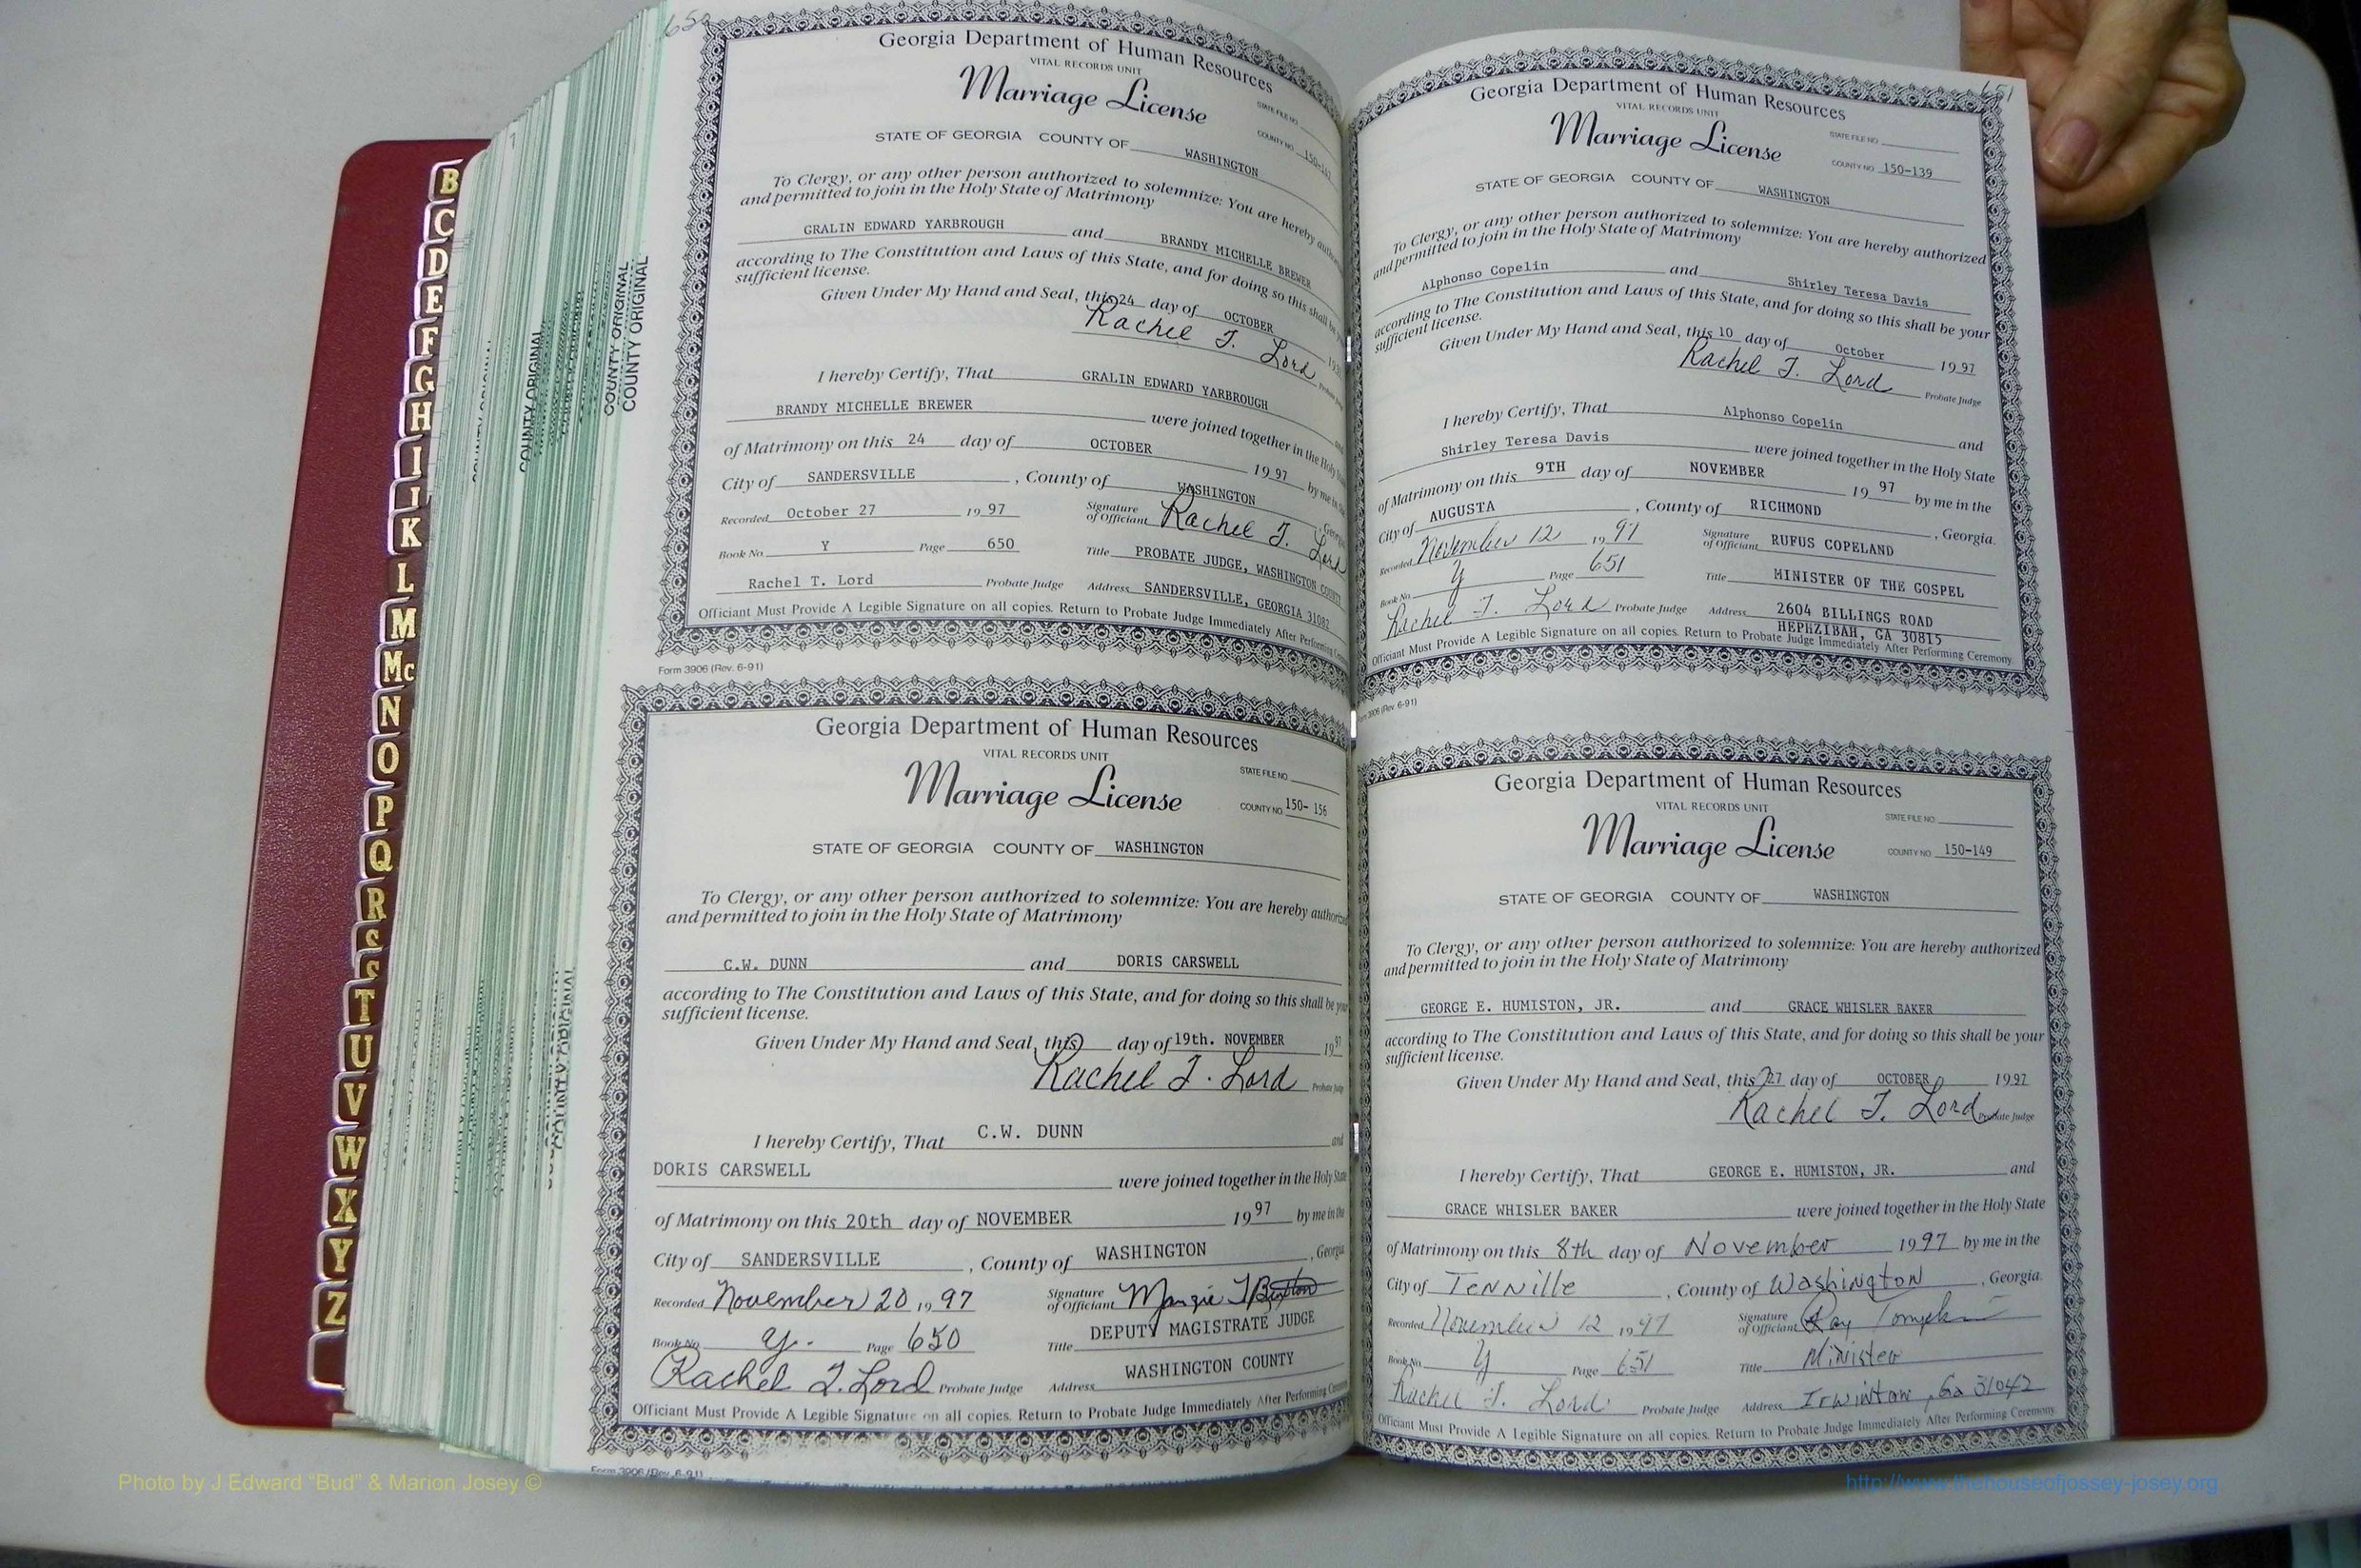 B
C
D
E
F
G
H
I
K
L
M
Mc
N
O
P
Q
R
S
S
T
U
V
W
X
Y
Z
COUNTY ORIGINAL
COUNTY ORIGINAL
COUNTY ORIGINAL
Georgia Department of Human Resources
VITAL RECORDS UNIT
Marriage License
STATE FILE NO.
COUNTY NO.
STATE OF GEORGIA COUNTY OF WASHINGTON
To Clergy, or any other person authorized to solemnize: You are hereby
and permitted to join in the Holy State of Matrimony
GRALIN EDWARD YARBROUGH and BRANDY MICHELLE BREWER
according to The Constitution and Laws of this State, and for doing so this shall be
sufficient license.
Given Under My Hand and Seal, this 24 day of OCTOBER
Rachel T. Lord
I hereby Certify, That GRALIN EDWARD YARBROUGH
BRANDY MICHELLE BREWER were joined together in the Holy
of Matrimony on this 24 day of OCTOBER 19 97 by me in
City of SANDERSVILLE , County of WASHINGTON
Recorded October 27 19 97 Signature of Officiant Rachel T. Lord
Book No. Y Page 650 Title PROBATE JUDGE, WASHINGTON COUNTY
Rachel T. Lord Probate Judge Address SANDERSVILLE, GEORGIA 31082
Officiant Must Provide A Legible Signature on all copies. Return to Probate Judge Immediately After Performing
Form 3906 (Rev. 6-91)
Georgia Department of Human Resources
VITAL RECORDS UNIT
Marriage License
STATE FILE NO.
COUNTY NO. 150- 156
STATE OF GEORGIA COUNTY OF WASHINGTON
To Clergy, or any other person authorized to solemnize: You are hereby
and permitted to join in the Holy State of Matrimony
C.W. DUNN and DORIS CARSWELL
according to The Constitution and Laws of this State, and for doing so this shall be
sufficient license.
Given Under My Hand and Seal, this day of 19th. NOVEMBER 19 97
Rachel T. Lord Probate Judge
I hereby Certify, That C.W. DUNN and
DORIS CARSWELL were joined together in the Holy State
of Matrimony on this 20th day of NOVEMBER 19 97 by me in the
City of SANDERSVILLE , County of WASHINGTON , Georgia
Recorded November 20 19 97 Signature of Officiant
Book No. Y. Page 650 Title DEPUTY MAGISTRATE JUDGE
Rachel T. Lord Probate Judge Address WASHINGTON COUNTY
Officiant Must Provide A Legible Signature on all copies. Return to Probate Judge Immediately After Performing
Form 3906 (Rev. 6-91)
651
Georgia Department of Human Resources
VITAL RECORDS UNIT
Marriage License
STATE FILE NO.
COUNTY NO. 150-139
STATE OF GEORGIA COUNTY OF WASHINGTON
To Clergy, or any other person authorized to solemnize: You are hereby authorized
and permitted to join in the Holy State of Matrimony
Alphonso Copelin and Shirley Teresa Davis
according to The Constitution and Laws of this State, and for doing so this shall be your
sufficient license.
Given Under My Hand and Seal, this 10 day of October 19 97
Rachel T. Lord Probate Judge
I hereby Certify, That Alphonso Copelin and
Shirley Teresa Davis were joined together in the Holy State
of Matrimony on this 9TH day of NOVEMBER 19 97 by me in the
City of AUGUSTA , County of RICHMOND , Georgia.
Recorded November 12 19 97 Signature of Officiant RUFUS COPELAND
Book No. Y Page 651 Title MINISTER OF THE GOSPEL
Rachel T. Lord Probate Judge Address 2604 BILLINGS ROAD
HEPHZIBAH, GA 30815
Officiant Must Provide A Legible Signature on all copies. Return to Probate Judge Immediately After Performing Ceremony
3906 (Rev. 6-91)
Georgia Department of Human Resources
VITAL RECORDS UNIT
Marriage License
STATE FILE NO.
COUNTY NO. 150-149
STATE OF GEORGIA COUNTY OF WASHINGTON
To Clergy, or any other person authorized to solemnize: You are hereby authorized
and permitted to join in the Holy State of Matrimony
GEORGE E. HUMISTON, JR. and GRACE WHISLER BAKER
according to The Constitution and Laws of this State, and for doing so this shall be your
sufficient license.
Given Under My Hand and Seal, this 27 day of OCTOBER 19 97
Rachel T. Lord Probate Judge
I hereby Certify, That GEORGE E. HUMISTON, JR. and
GRACE WHISLER BAKER were joined together in the Holy State
of Matrimony on this 8th day of November 19 97 by me in the
City of Tennille , County of Washington , Georgia.
Recorded November 12 19 97 Signature of Officiant Ray
Book No. Y Page 651 Title Minister
Rachel T. Lord Probate Judge Address Irwinton, Ga 31042
Officiant Must Provide A Legible Signature on all copies. Return to Probate Judge Immediately After Performing Ceremony
Photo by J Edward “Bud” & Marion Josey ©
http://www.thehouseofjossey-josey.org